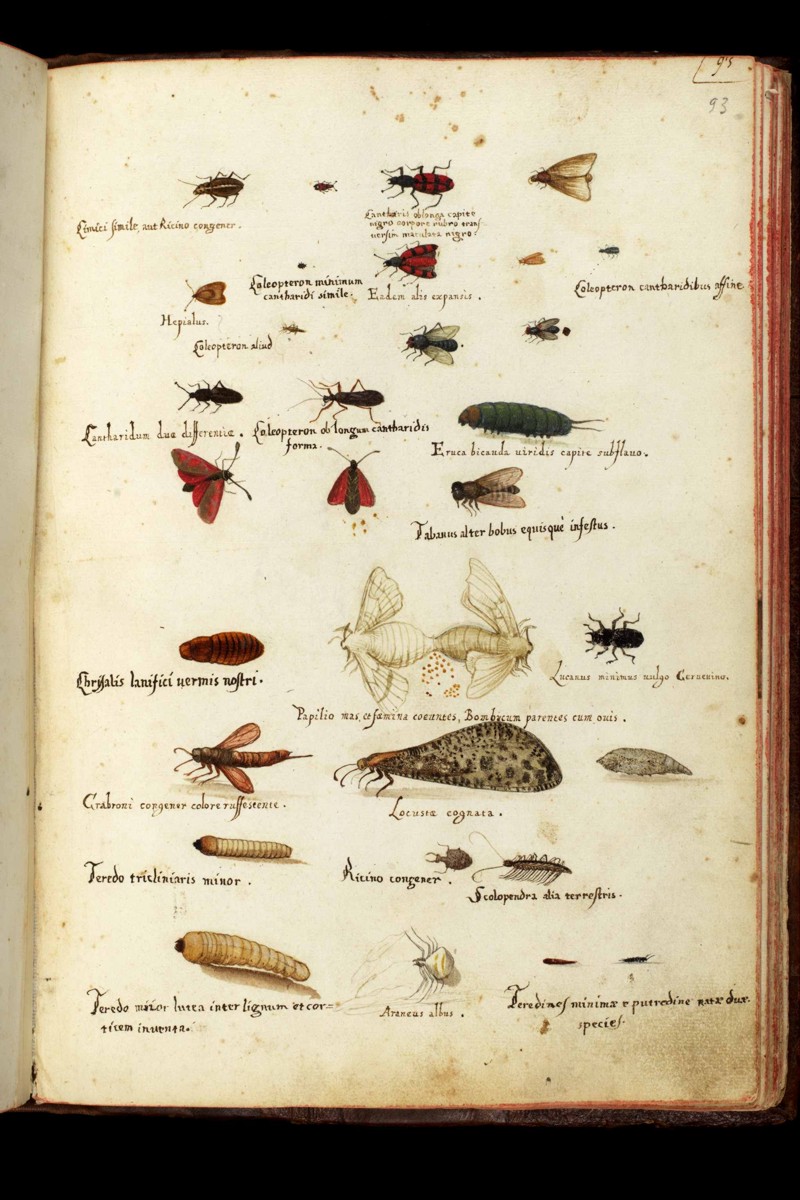 93
93
Cimici simile, aut Ricino congener.
Cantharis oblonga capite
nigro corpore rubro trans=
uersim maculata nigro.
Coleopteron minimum
cantharidi simile.
Eadem alis expansis.
Coleopteron cantharidibus affine
Hepialus.
Coleopteron aliud
Cantharidum duæ differentiæ.
Coleopteron oblongum cantharidis
forma.
Eruca bicauda uiridis capite subflauo.
Tabanus alter bobus equisque infestus.
Chrysalis lanifici uermis nostri.
Lucanus minimus uulgo Ceruuino.
Papilio mas, et fœmina coeuntes, Bombycum parentes cum ouis.
Crabroni congener colore ruffescente.
Locustæ cognata.
Teredo tricliniaris minor.
Ricino congener.
Scolopendra alia terrestris.
Teredo maior lutea inter lignum et cor=
ticem inuenta.
Araneus albus.
Teredines minimæ e putredine natæ duæ
species.